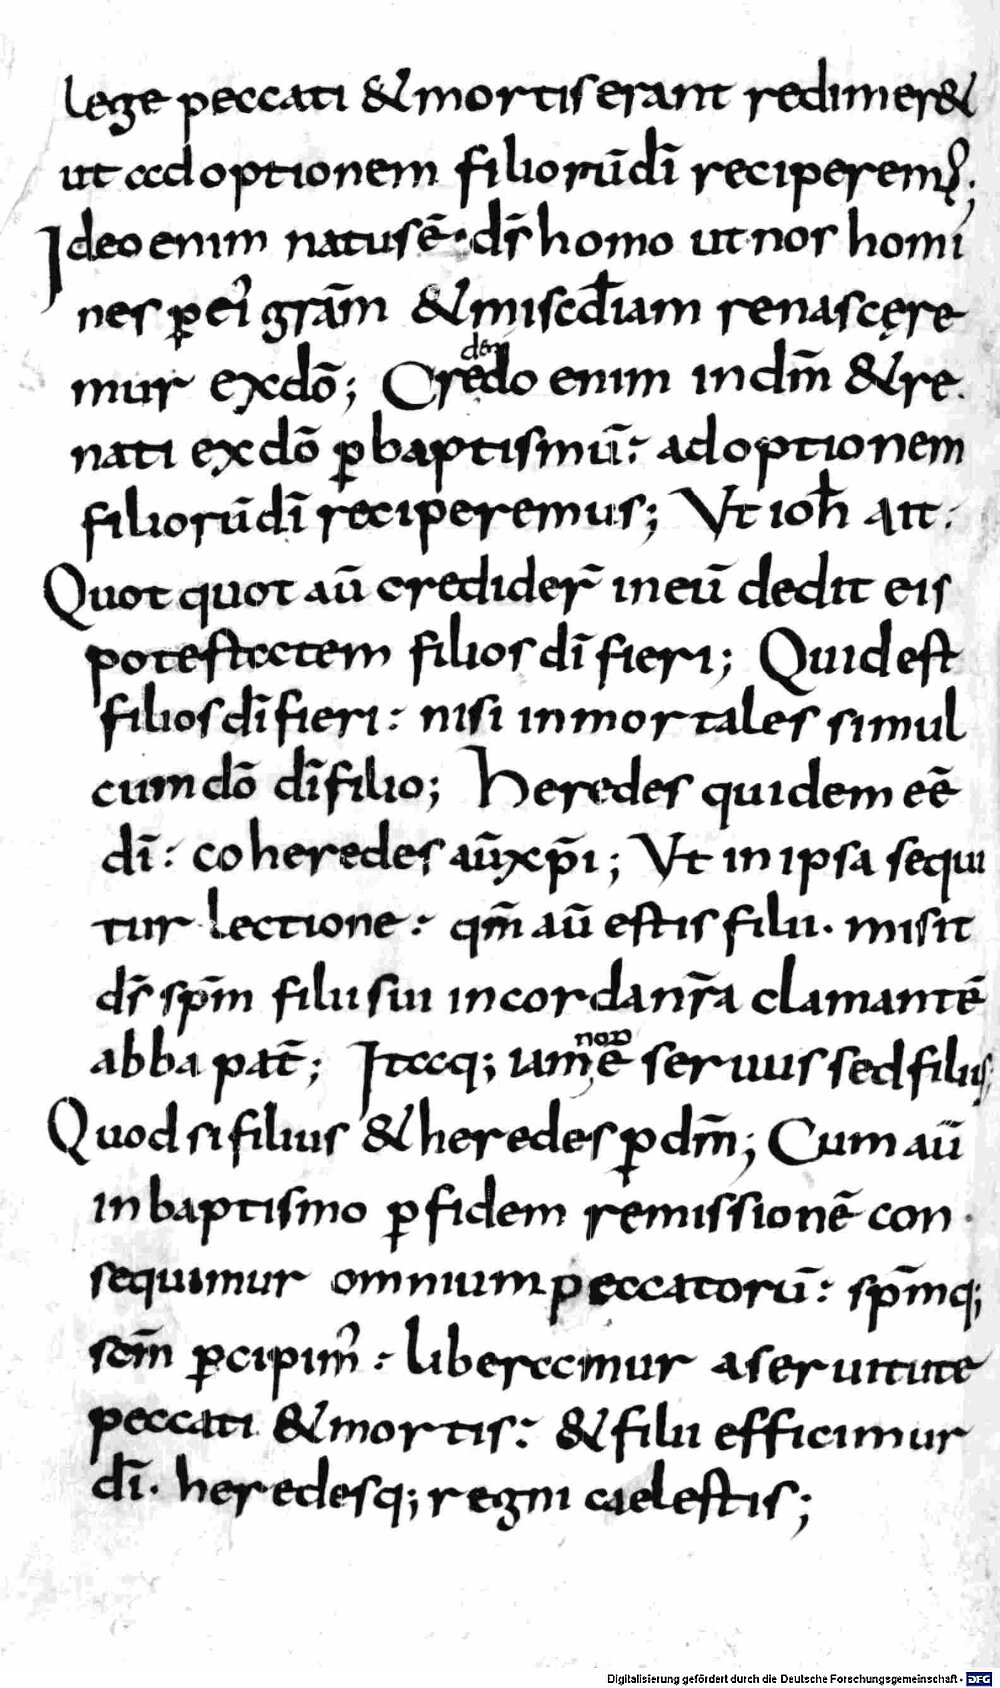 lege peccati & mortis erant redimer&
ut adoptionem filiorū dī reciperemꝰ;
Ideo enim natus ē· ds̄ homo ut nos homi
nes ꝑ ei' grām & miscd̄iam renascere
mur ex dō; Credo enim in dm̄ & re
den
nati ex dō ꝑ baptismū: adoptionem
filiorū dī reciperemus; Ut ioh̄ ait:
Quotquot aū crediderˉ in eū dedit eis
potestatem filios dī fieri; Quid est
filios dī fieri: nisi inmortales simul
cum dō dī filio; Heredes quidem eē
dī: coheredes aū xp̄i; Ut in ipsa sequi
tur lectione: qm̄ aū estis filii· misit
ds̄ sp̄m filii sui in corda nr̄a clamantē
abba pat̄; Itaq; iam ē seruus sed filius;
non
Quod si filius & heredes ꝑ dm̄; Cum aū
in baptismo ꝑ fidem remissionē con
sequimur omnium peccatorū: sp̄mq;
scm̄ ꝑcipim': liberamur a seruitute
peccati & mortis: & filii efficimur
dī· heredesq; regni caelestis;
Digitalisierung gefördert durch die Deutsche Forschungsgemeinschaft - DFG